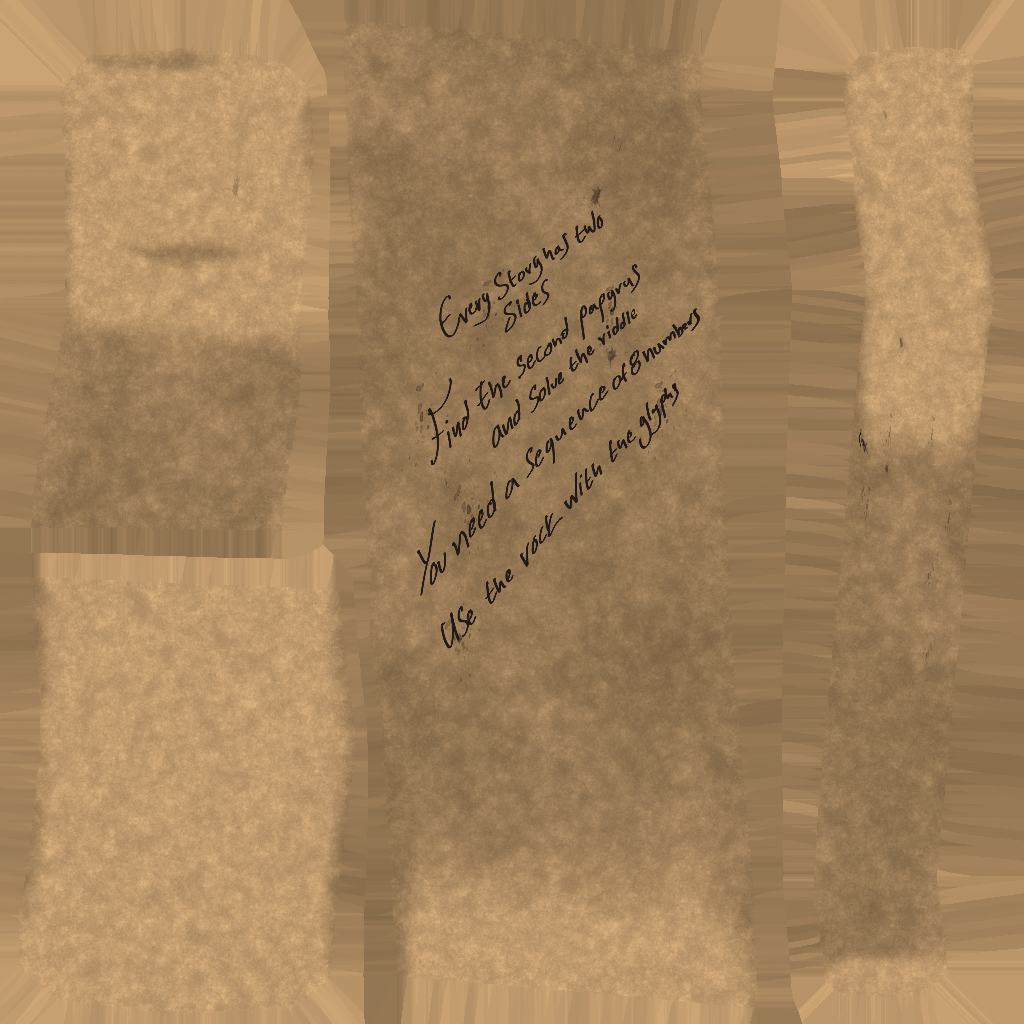 Every Story has two
Sides
Find the second papyrus
and solve the riddle
You need a sequence of 8 numbers
Use the rock with the glyphs